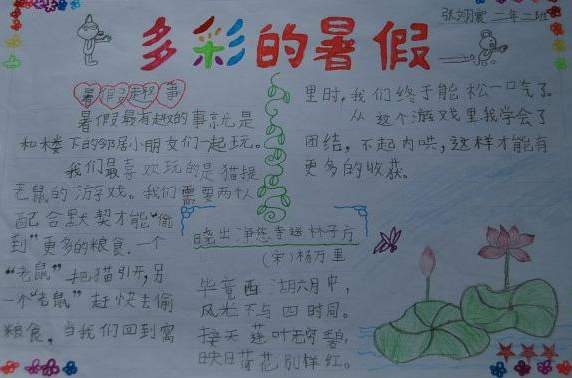 多彩的暑假
张翊宸 二年二班
暑假趣事
暑假最有趣的事就是
和楼下的邻居小朋友们一起玩。
我们最喜欢玩的是猫捉
老鼠的游戏。我们需要两个人
配合默契才能"偷
到"更多的粮食。一个
"老鼠"把猫引开,另
一个"老鼠"赶快去偷
粮食。当我们回到窝
里时,我们终于能松一口气了。
从这个游戏里我学会了
团结,不起内哄,这样才能有
更多的收获。
晓出净慈寺送林子方
(宋)杨万里
毕竟西湖六月中,
风光不与四时同。
接天莲叶无穷碧,
映日荷花别样红。